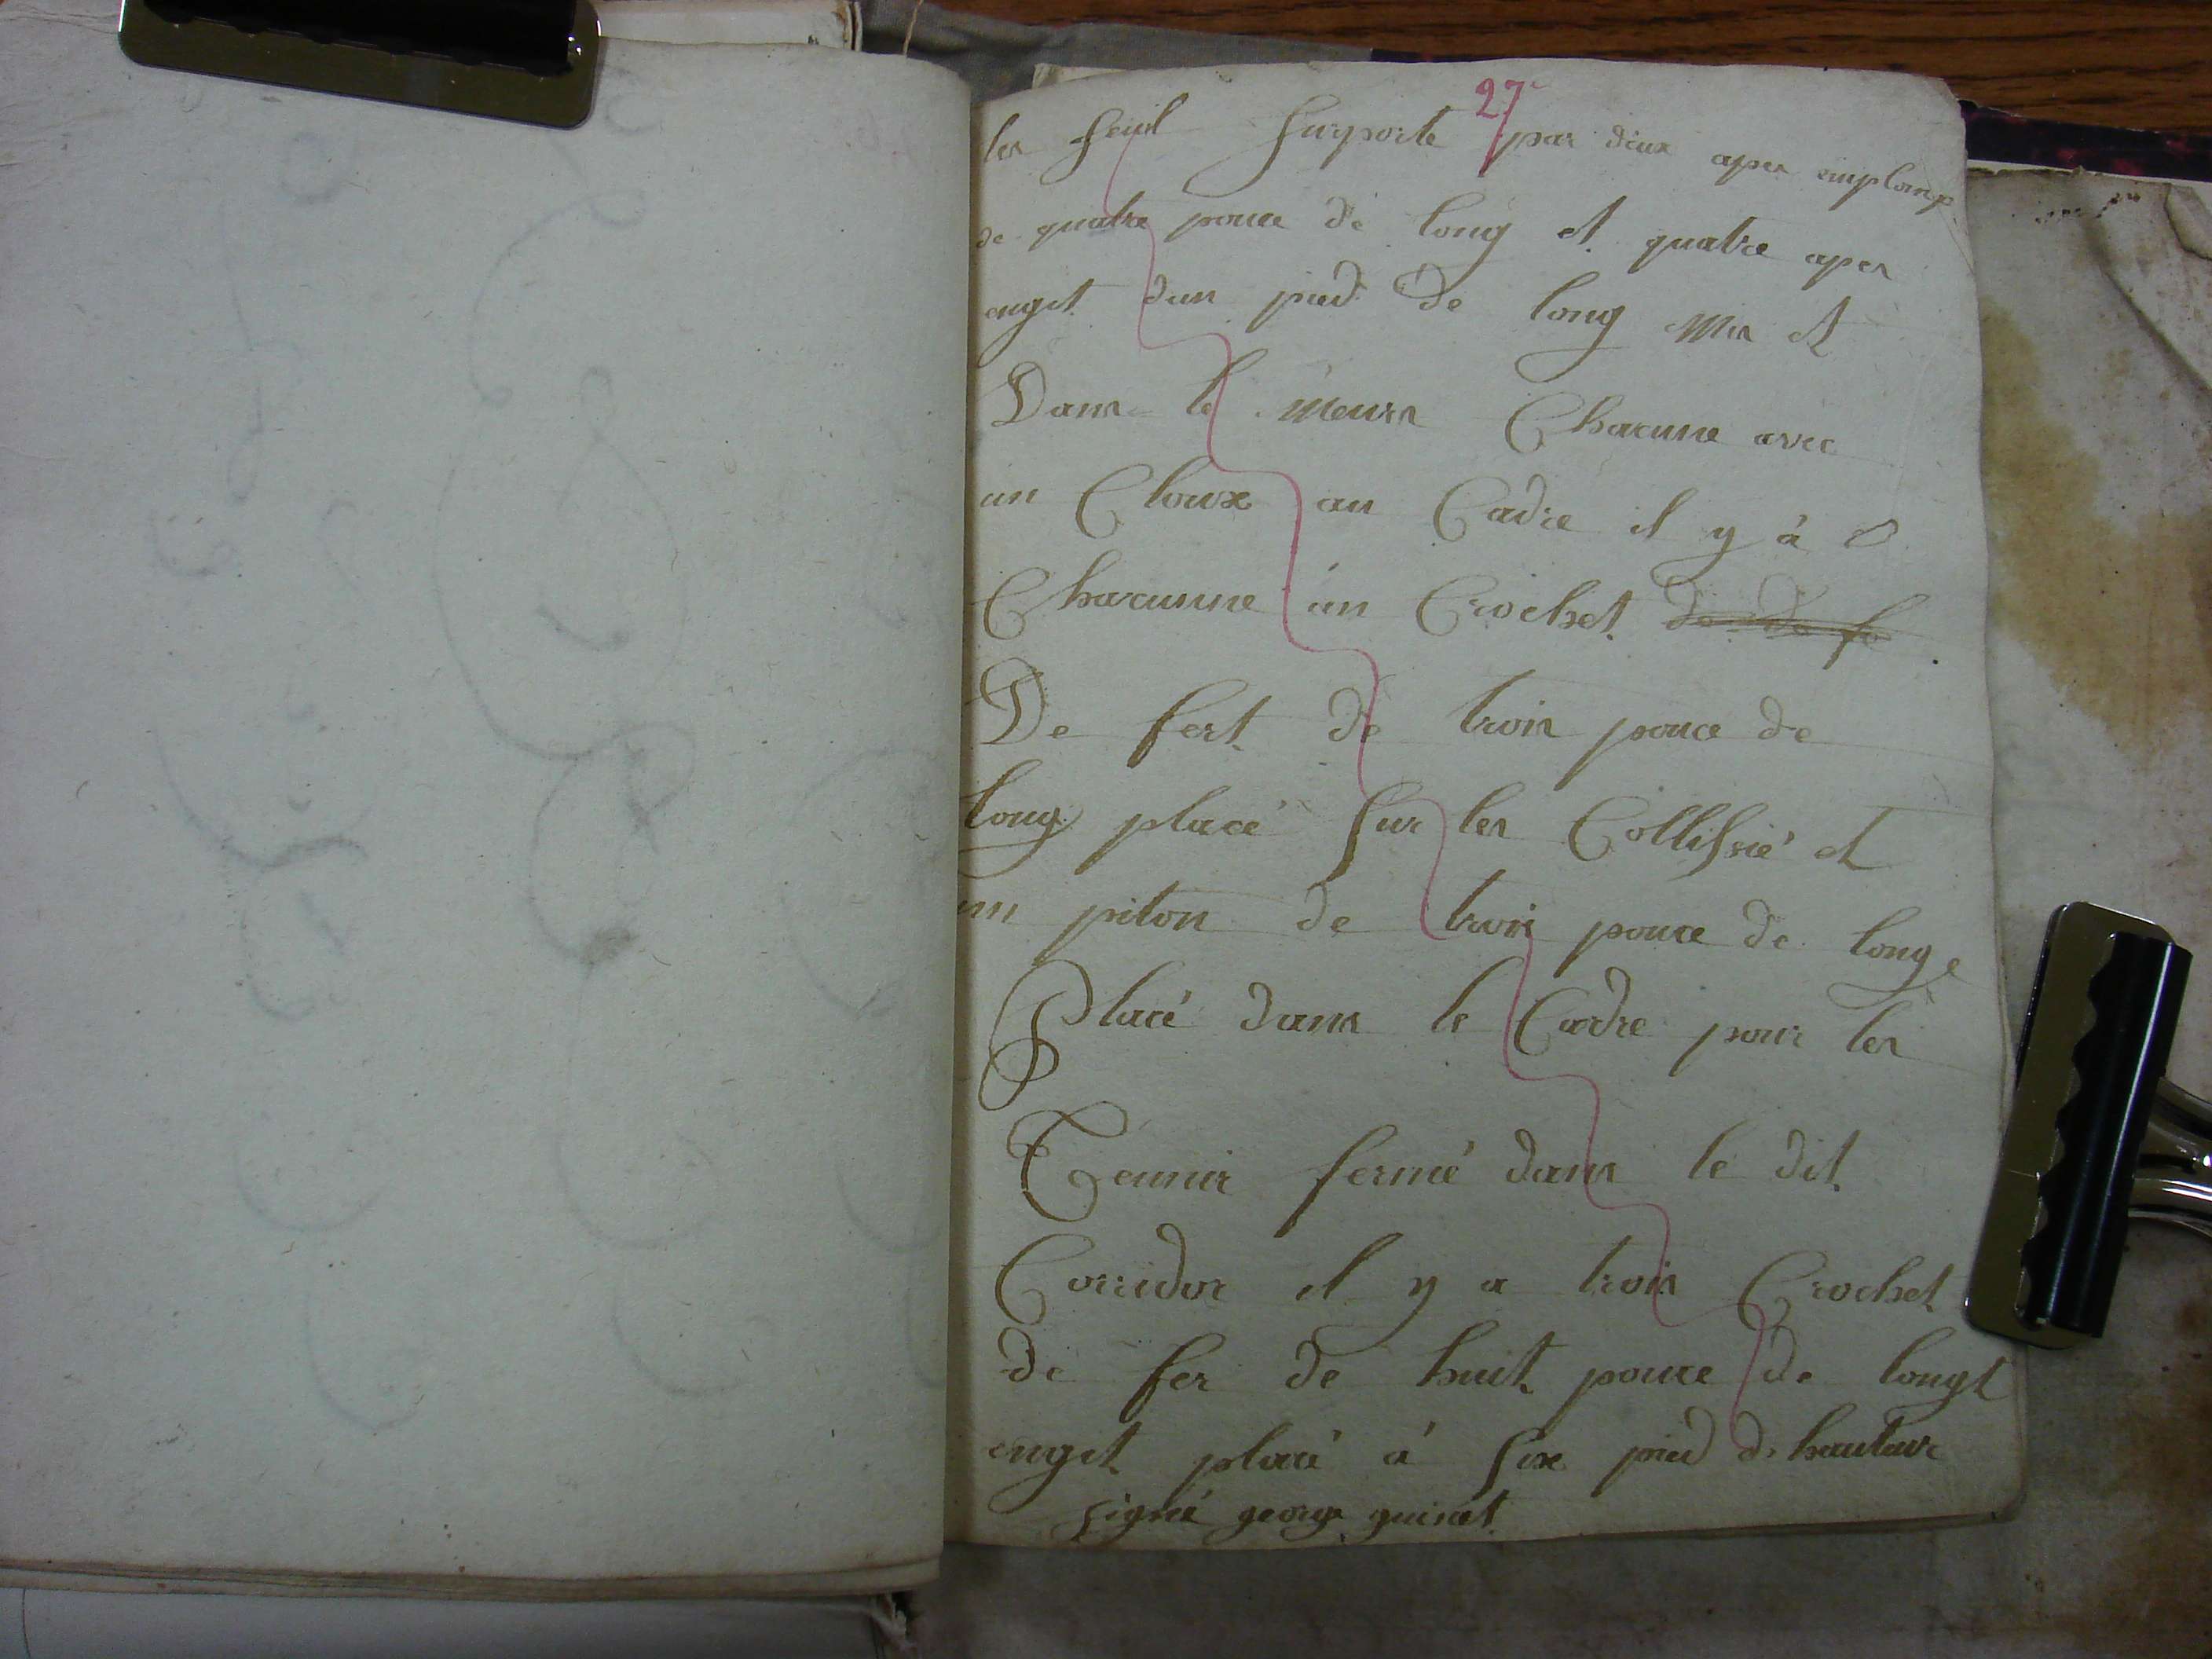 27
les feuil surporte par deux apes emplomp
de quatre pouce de long et quatre apes
enget d'un pied de long mis et
Dans le meurs Chacune avec
un Cloux au Cadre il y à
Chacunne un Crochet de de fe
De fert de trois pouce de
long placé sur les Collissié et
un piton de trois pouce de long
Placé dans le Cadre pour les
Teunir fermé dans le dit
Corridor il y a trois Crochet
de fer de huit pouce de longt
enget placé à six pied de hauteur
signé george guinet